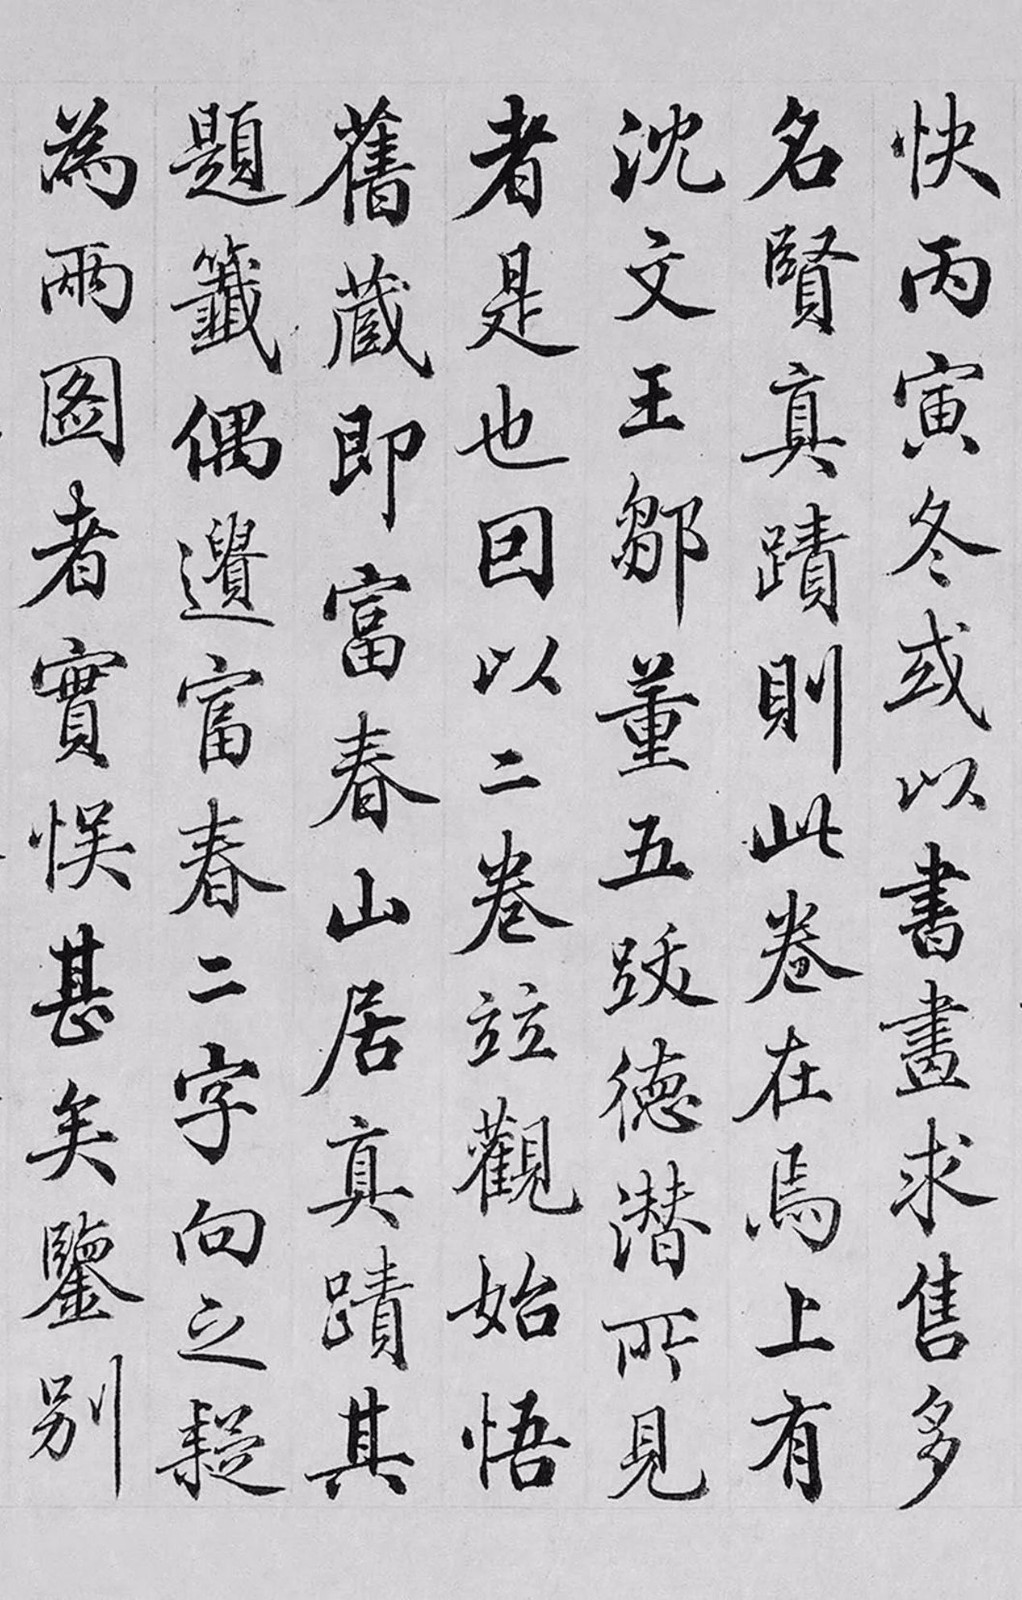 快丙寅冬或以書畫求售多
名賢真蹟則此卷在焉上有
沈文王鄒董五跋德潛所見
者是也因以二卷竝觀始悟
舊藏即富春山居真蹟其
題籤偶遺富春二字向之疑
為兩圖者實悞甚矣鑒別